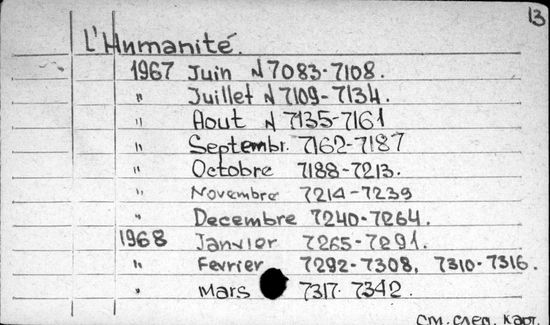 13
L'Humanité.
1967 Juin N 7083-7108.
" Juillet N 7109-7134.
" Aout N 7135-7161
" Septembr. 7162-7187
" Octobre 7188-7213.
" Novembre 7214-7239
" Decembre 7240-7264.
1968 Janvier 7265-7291.
" Fevrier 7292-7308, 7310-7316.
" Mars 7317-7342.
см. след. карт.